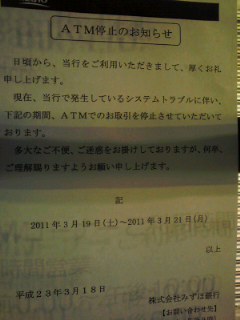 ATM停止のお知らせ
日頃から、当行をご利用いただきまして、厚くお礼
申し上げます。
現在、当行で発生しているシステムトラブルに伴い、
下記の期間、ATMでのお取引を停止させていただいて
おります。
多大なご不便、ご迷惑をお掛けしておりますが、何卒、
ご理解賜りますようお願い申し上げます。
記
2011年3月19日(土)~2011年3月21日(月)
以上
平成23年3月18日
株式会社みずほ銀行
【お問い合わせ先】